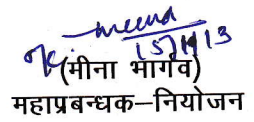 meena
15/11/13
(मीना भार्गव)
महाप्रबन्धक–नियोजन